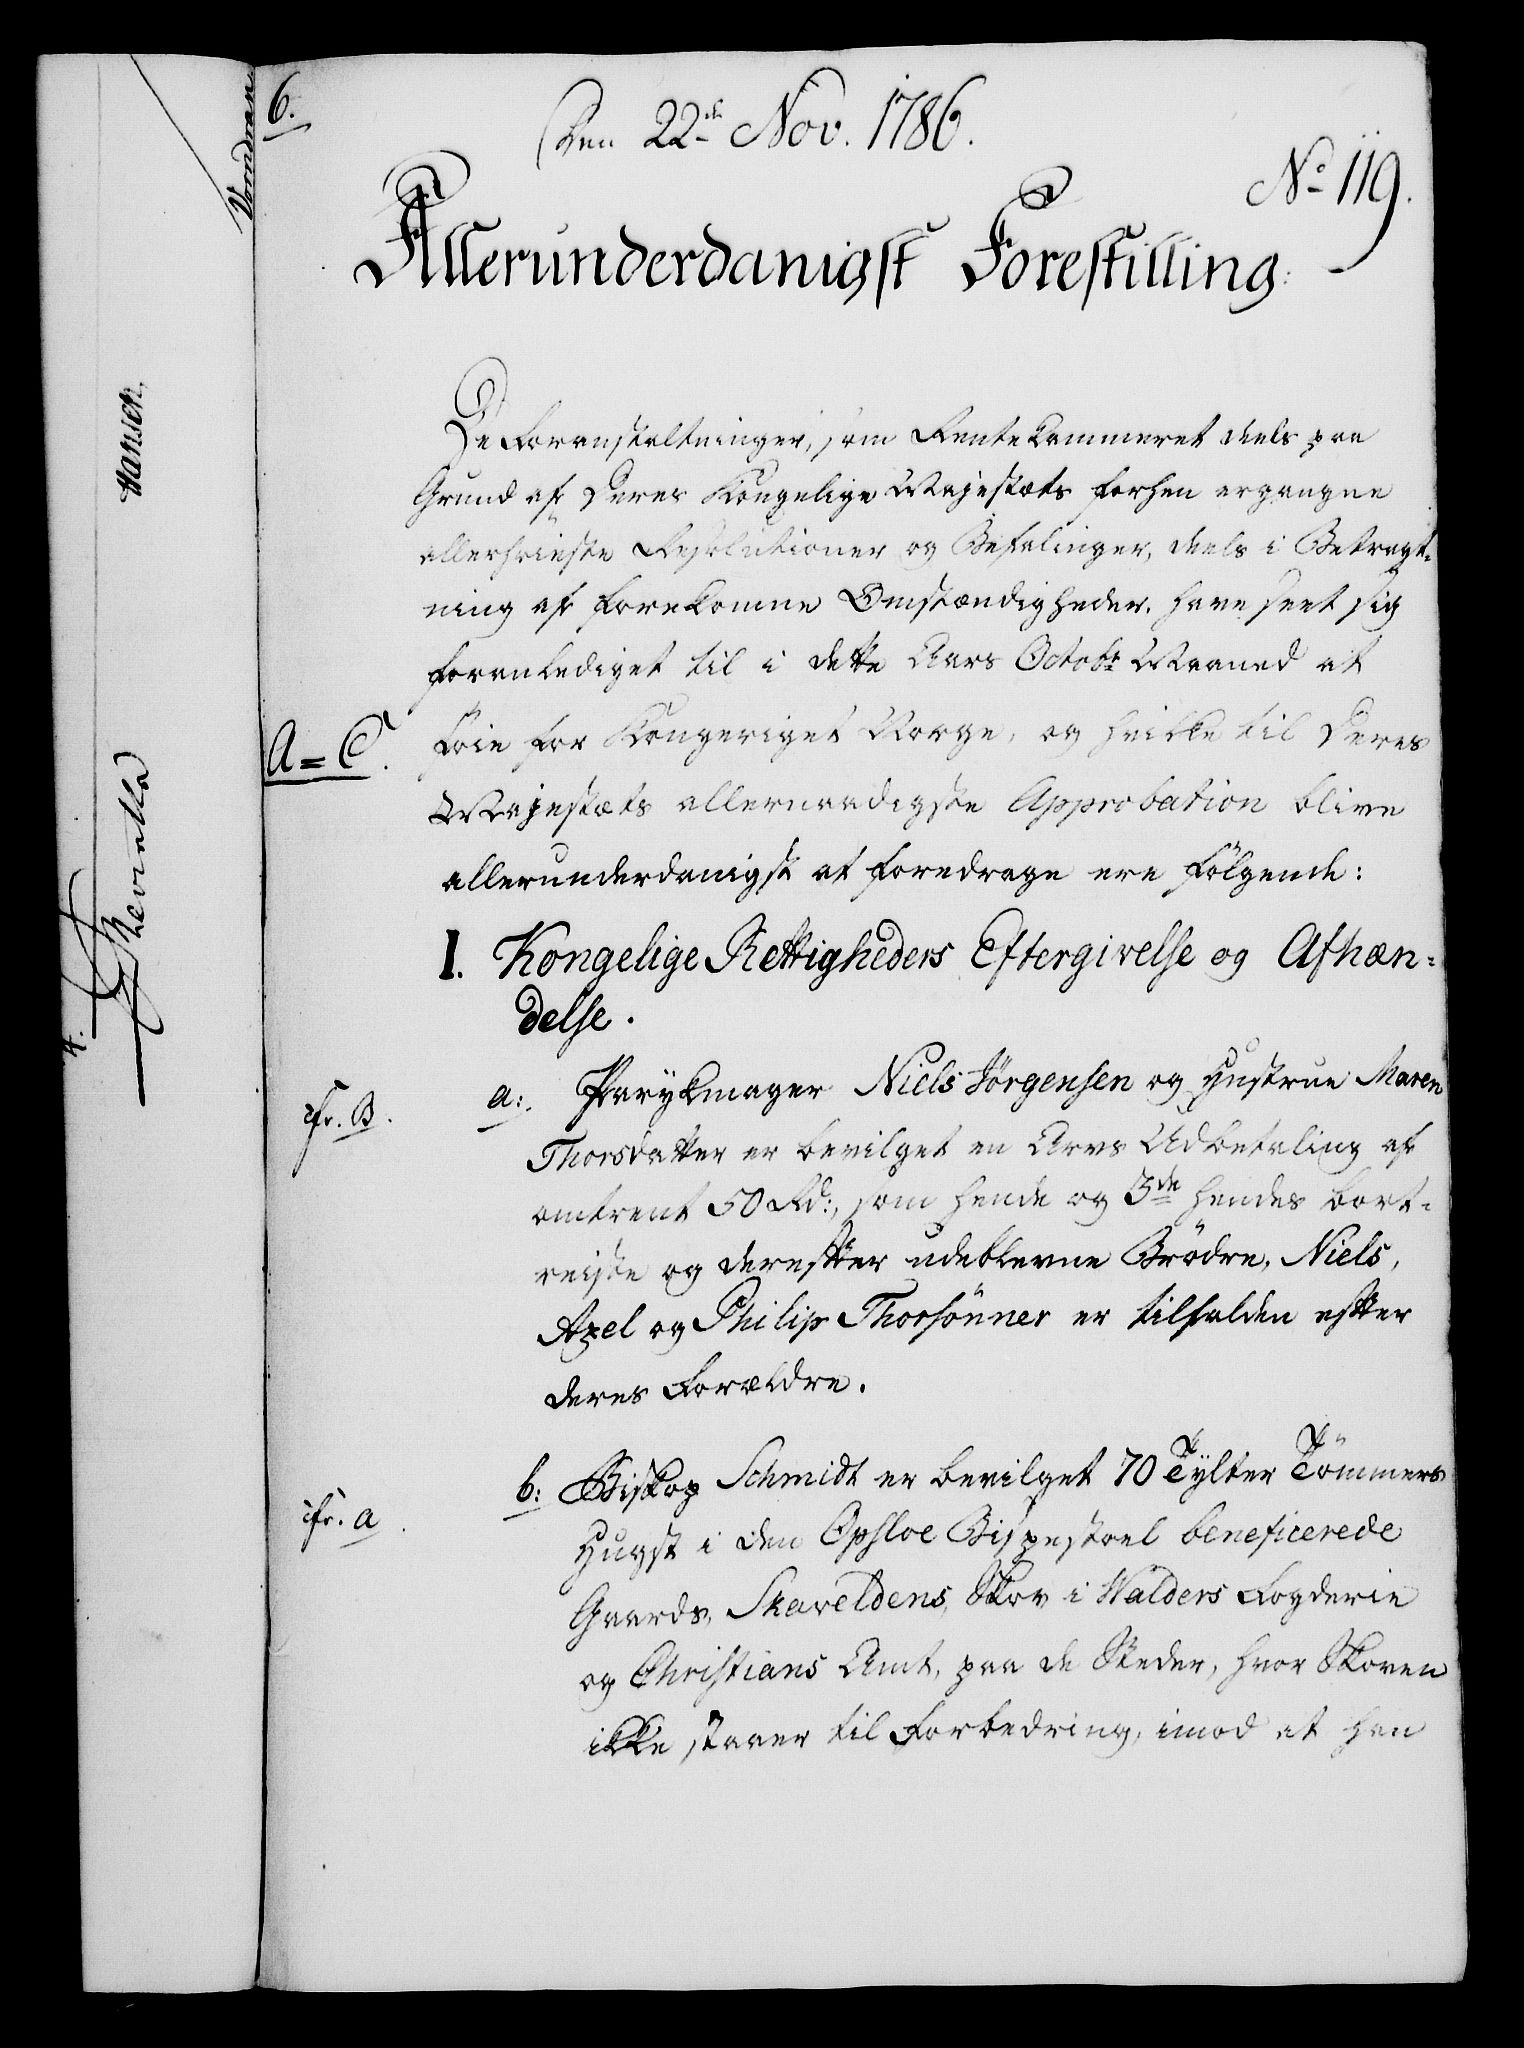 6.
Den 22de Nov. 1786.
No 119.
Allerunderdanigst Forestilling:
De Foranstaltninger, som Rentekammeret deels paa
Grund af Deres Kongelige Majestæts forhen ergangne
allerhøieste Resolutioner og Befalinger, deels i Betragt-
ning af forekomne Omstændigheder, have seet sig
foranlediget til i dette Aars Octobr Maaned at
A=C.
føie for Kongeriget Norge, og hvilke til Deres
Majestæts allernaadigste Approbation blive
allerunderdanigst at foredrage ere følgende:
I. Kongelige Rettigheders Eftergivelse og Afhæn-
delse.
cfr. B.
a: Parykmager Niels Jörgensen og Hustrue Maren
Thorsdatter er bevilget en Arvs Udbetaling af
omtrent 50 Rd:, som hende og 3de hendes bort-
reiste og derefter udeblevne Brödre, Niels,
Axel og Philip Thorsönner er tilfalden efter
deres Forældre.
cfr. a.
b: Biskop Schmidt er bevilget 70 Tylter Tömmers
Hugst i den Opsloe Bispestoel beneficerede
Gaards, Skaveldens, Skov i Walders Fogderie
og Christians Amt, paa de Steder, hvor Skoven
ikke staaer til Forbedring, imod at han
Vondran
Hansen.
4.